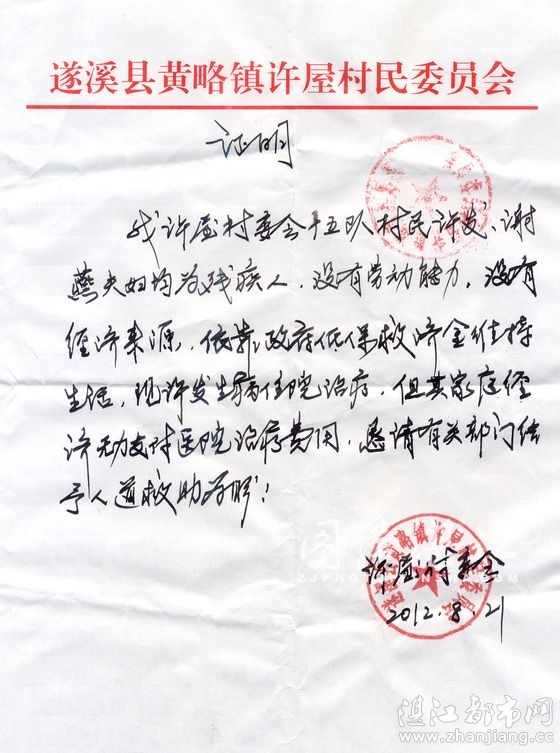 遂溪县黄略镇许屋村民委员会
证明
我许屋村委会十五队村民许发、谢
燕夫妇均为残疾人，没有劳动能力，没有
经济来源，依靠政府低保救济金维持
生活，现许发生病住院治疗，但其家庭经
济无力支付医院治疗费用，恳请有关部门给
予人道救助为盼！
许屋村委会
2012.8.21
湛江都市网
www.zhanjiang.cc